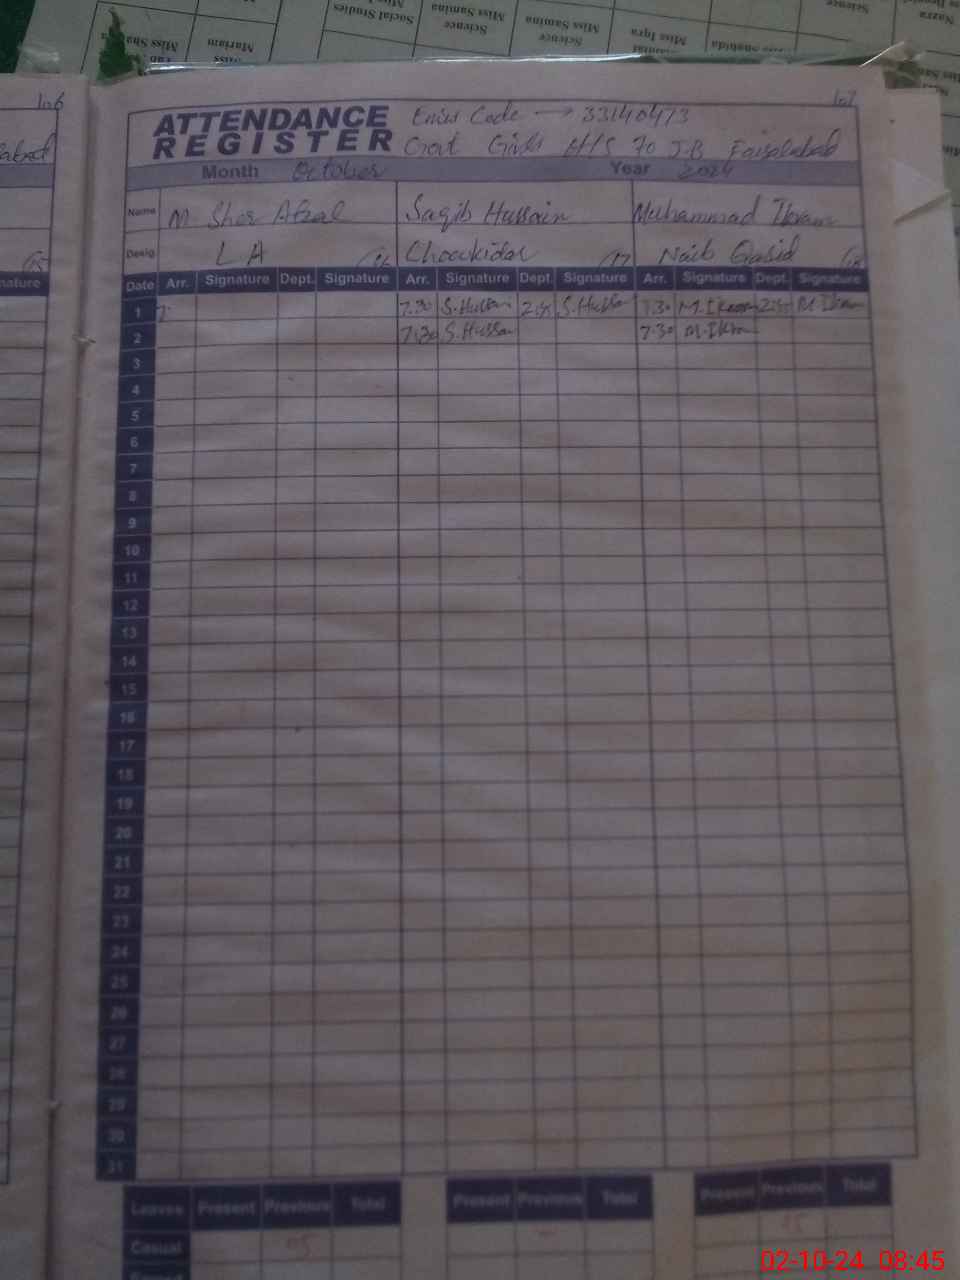 Nazra
Science
Miss Samina
Science
Social Studies
Miss Iqra
Science
Miss Samina
Mariam
Miss
106
107
ATTENDANCE
REGISTER
Emis Code → 33140473
Govt Girls H/S 70 J.B Faisalabad
Month October Year 2024
Name M. Sher Afzal Saqib Hussain Muhammad Ikram
Desig L A 16 Chowkidar 17 Naib Qasid 18
nature Date Arr. Signature Dept. Signature Arr. Signature Dept. Signature Arr. Signature Dept. Signature
1 7: 7.30 S.Hussain 2:45 S.Hussain 7.30 M.Ikram 2:45 M.Ikram
2 7:30 S.Hussain 7:30 M.Ikram
3
4
5
6
7
8
9
10
11
12
13
14
15
16
17
18
19
20
21
22
23
24
25
26
27
28
29
30
31
Leaves Present Previous Total Present Previous Total Present Previous Total
Casual 05 - 
02-10-24 08:45